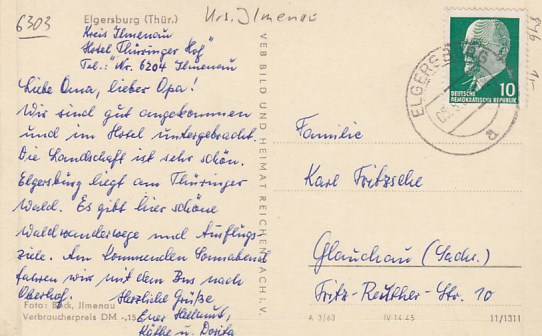 6303
Elgersburg (Thür.)
Krs. Ilmenau
Kreis Ilmenau
Hotel Thüringer Hof"
Tel.: "Nr. 6204 Ilmenau
Liebe Oma, lieber Opa!
Wir sind gut angekommen
und im Hotel untergebracht.
Die Landschaft ist sehr schön.
Elgersburg liegt am Thüringer
Wald. Es gibt hier schöne
Waldwanderwege und Ausflugs-
ziele. Am kommenden Sonnabend
fahren wir mit dem Bus nach
Oberhof.
Herzliche Grüße
Euer Hellmut,
Käthe u. Dorita
Foto: Beck, Ilmenau
Verbraucherpreis DM -,15
VEB BILD UND HEIMAT REICHENBACH I. V.
ELGERSBURG
a
10
DEUTSCHE
DEMOKRATISCHE REPUBLIK
1,-
Familie
Karl Fritzsche
Glauchau (Sachs.)
Fritz-Reuther-Str. 10
A 3/63
IV-14-45
11/1311